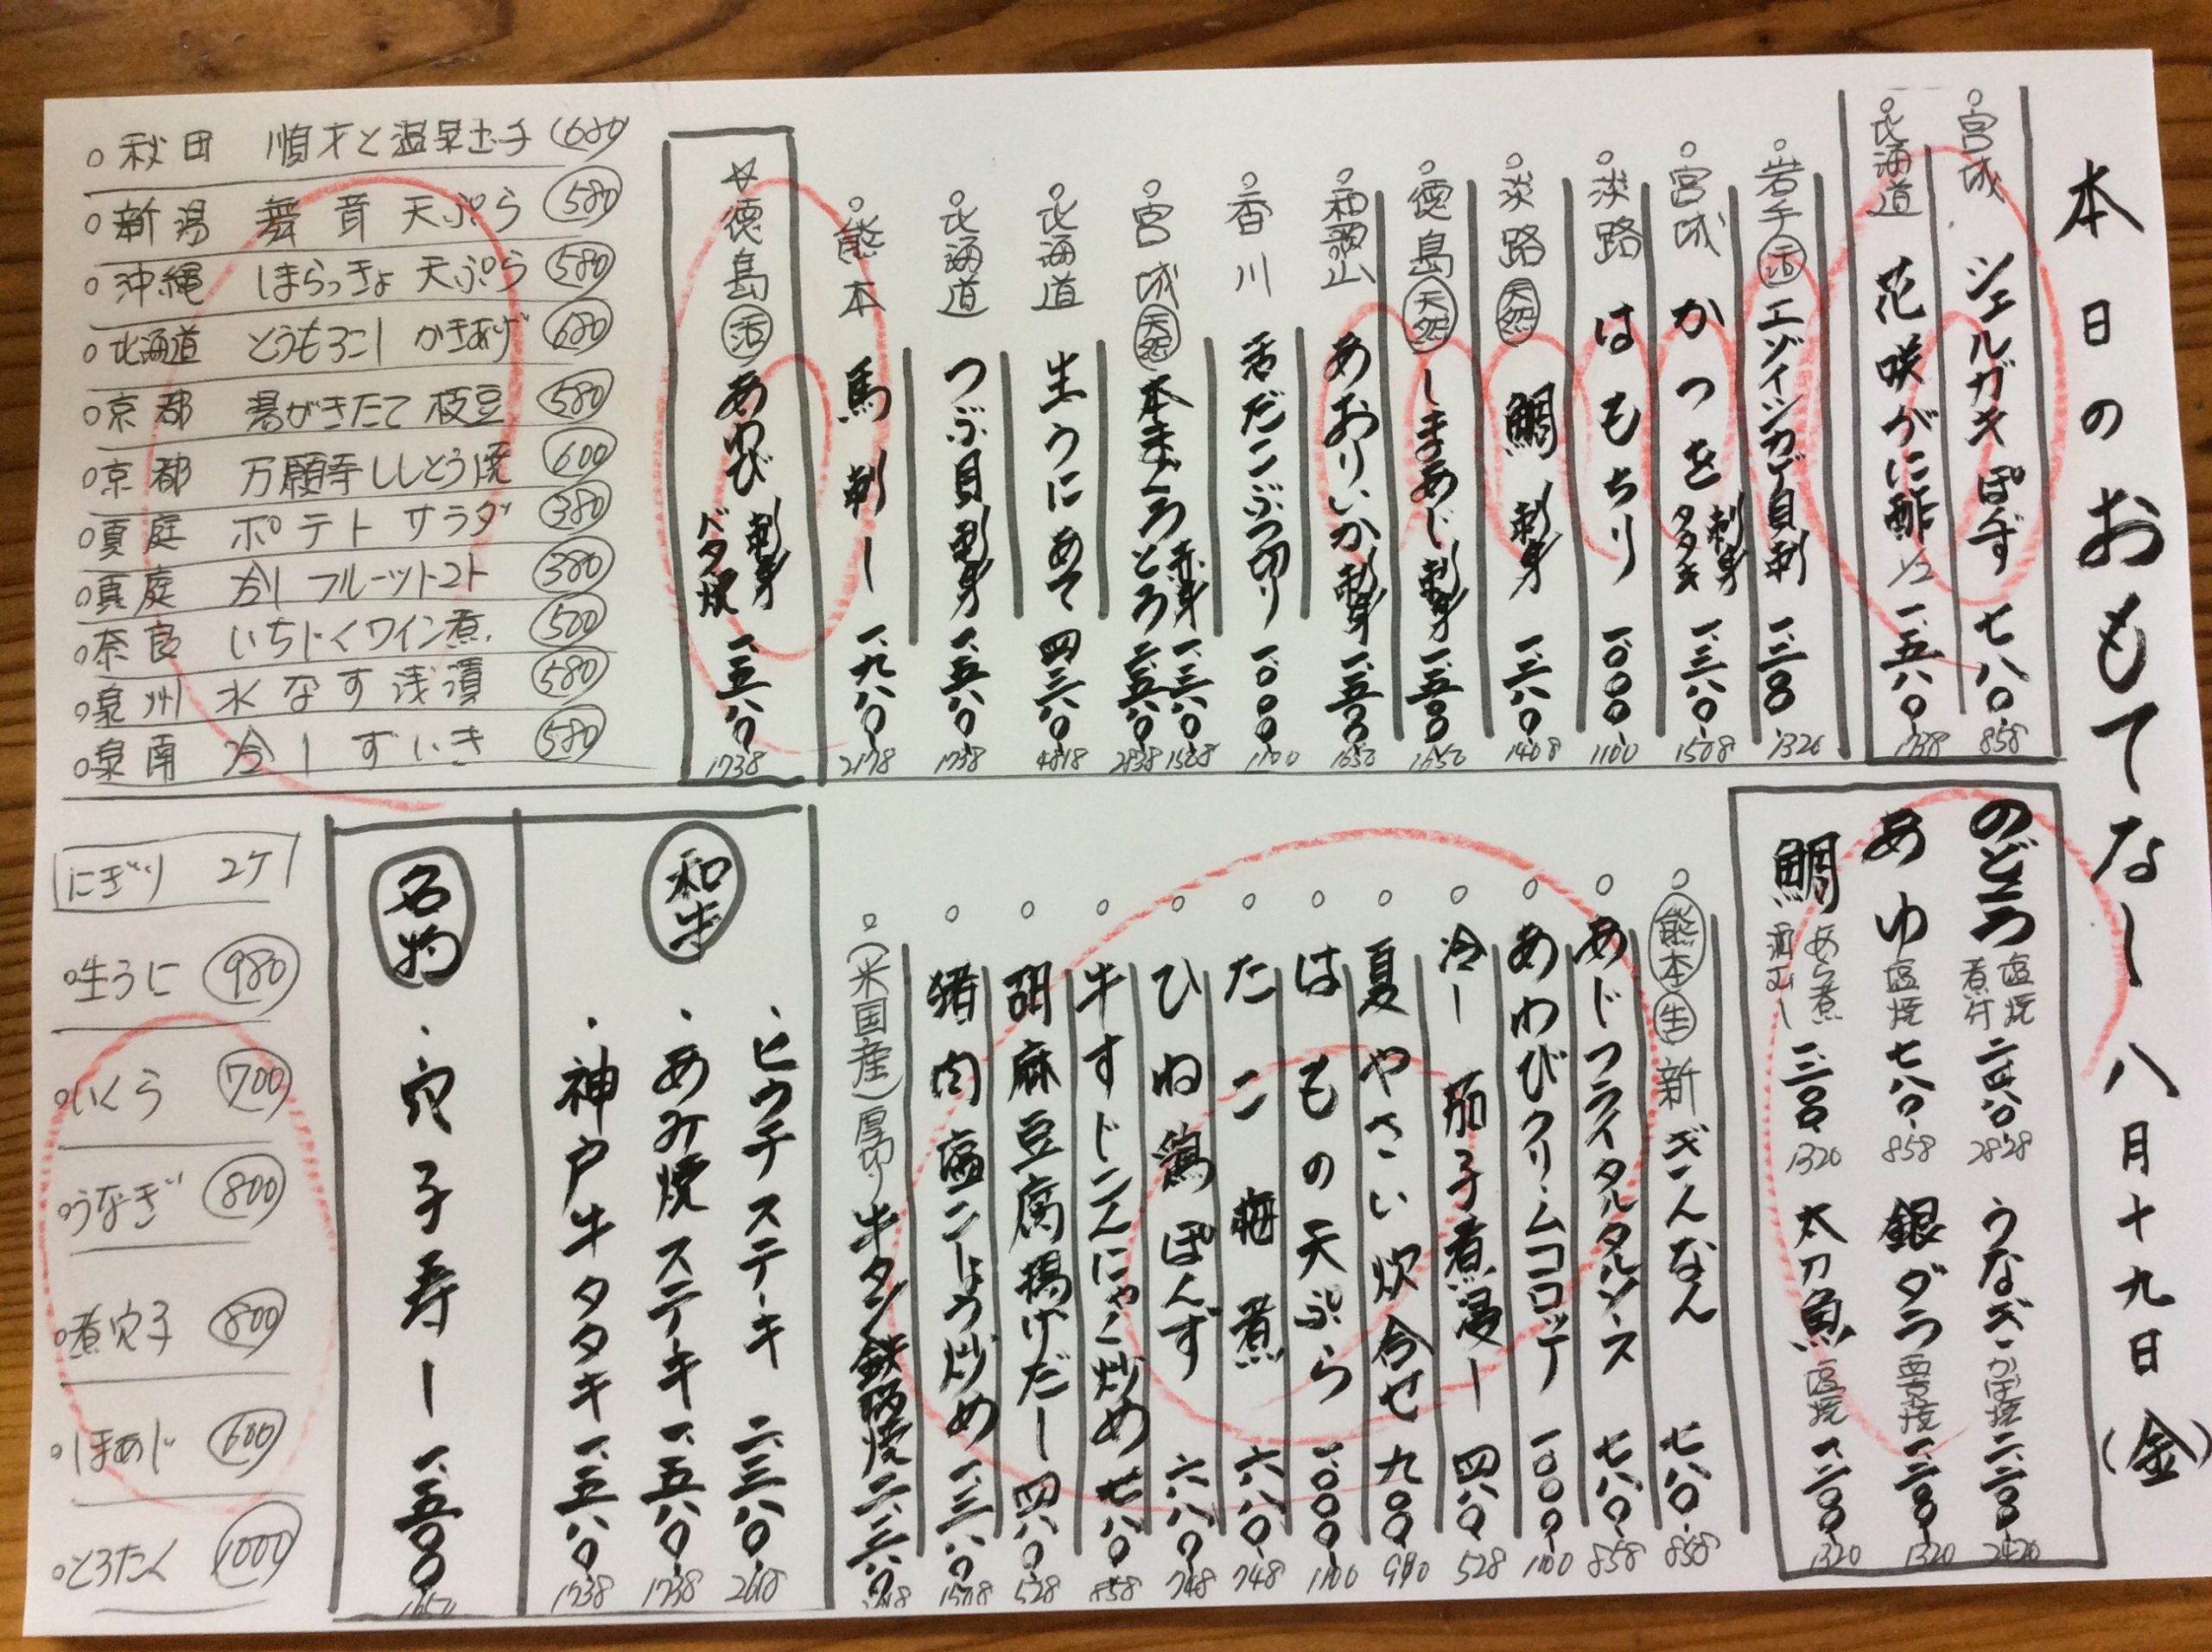 本日のおもてなし 八月十九日(金)
○宮城 シェルガキ ぽんず 七八〇 858
○北海道 花咲がに酢 1/2 一、五八〇 1738
○岩手 活 エゾイシカゲ貝刺 1320
○宮城 かつを 刺身 タタキ 一、三八〇 1508
○淡路 はもちり 一、〇〇〇 1100
○淡路 天然 鯛 刺身 1408
○徳島 天然 しまあじ 刺身 一、五〇〇 1650
○和歌山 あおりいか 刺身 一、五〇〇 1650
○香川 活だこぶつ切り 一、〇〇〇 1100
○宮城 天然 本まぐろ 赤身 一、三八〇 1528 とろ 二、五八〇 2838
○北海道 生うにあて 四、三八〇 4818
○北海道 つぶ貝刺身 一、五八〇 1738
○熊本 馬刺し 一、九八〇 2178
☆徳島 活 あわび 刺身 バタ焼 一、五八〇 1738
○秋田 順才と温泉玉子 680
○新潟 舞茸 天ぷら 580
○沖縄 しまらっきょ 天ぷら 580
○北海道 とうもろこし かきあげ 680
○京都 湯がきたて 枝豆 580
○京都 万願寺ししとう焼 600
○真庭 ポテトサラダ 380
○真庭 冷しフルーツトマト 380
○奈良 いちじくワイン煮 500
○泉州 水なす 浅漬 580
○泉南 冷しずいき 580
のどぐろ 塩焼 煮付 2828
うなぎ かば焼 二、二〇〇 2420
あゆ 塩焼 七八〇 858
銀ダラ 西京焼 一、二〇〇 1320
鯛 あら煮 酒むし 一、二〇〇 1320
太刀魚 塩焼 一、二〇〇 1320
○熊本 生 新ぎんなん 七八〇 858
○あじフライタルタルソース 七八〇 858
○あわびクリームココット 一、〇〇〇 1100
○冷し 茄子煮浸し 四八〇 528
○夏やさい炊合せ 九〇〇 990
○はもの天ぷら 一、〇〇〇 1100
○たこ梅煮 六八〇 748
○ひね鶏ぽんず 六八〇 748
○牛すじこんにゃく炒め 七八〇 858
○胡麻豆腐揚げだし 四八〇 528
○猪肉塩こしょう炒め 一、三八〇 1508
○(米国産)厚切り牛タン鉄板焼 二、三八〇
和牛
・ヒウチステーキ 二、三八〇 2618
・あみ焼ステーキ 一、五八〇 1738
・神戸牛タタキ 一、五八〇 1738
名物
・穴子寿し 一、五〇〇 1650
にぎり 2ケ
○生うに 980
○いくら 700
○うなぎ 800
○煮穴子 800
○しまあじ 600
○とろたく 1000